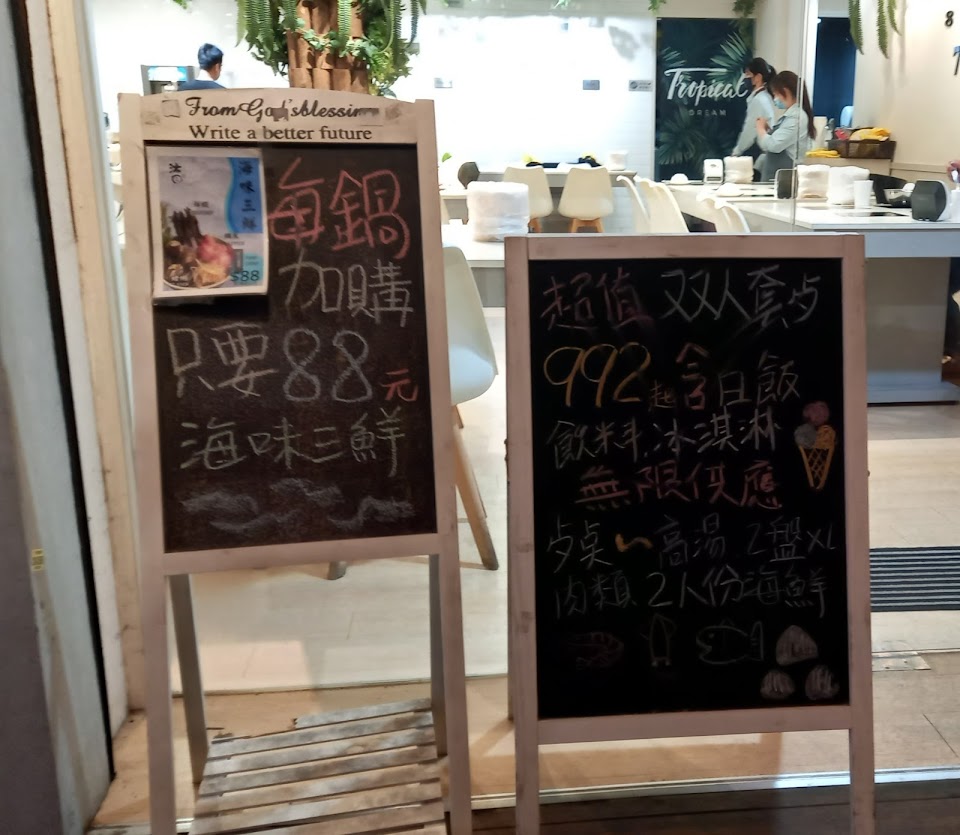 Write a better future
海味三鮮
$88
每鍋
加購
只要88元
海味三鮮
Tropical
DREAM
超值 双人套歺
992起含白飯
飲料.冰淇淋
無限供應
歺桌~高湯 2盤XL
肉類 2人份海鮮
8
7